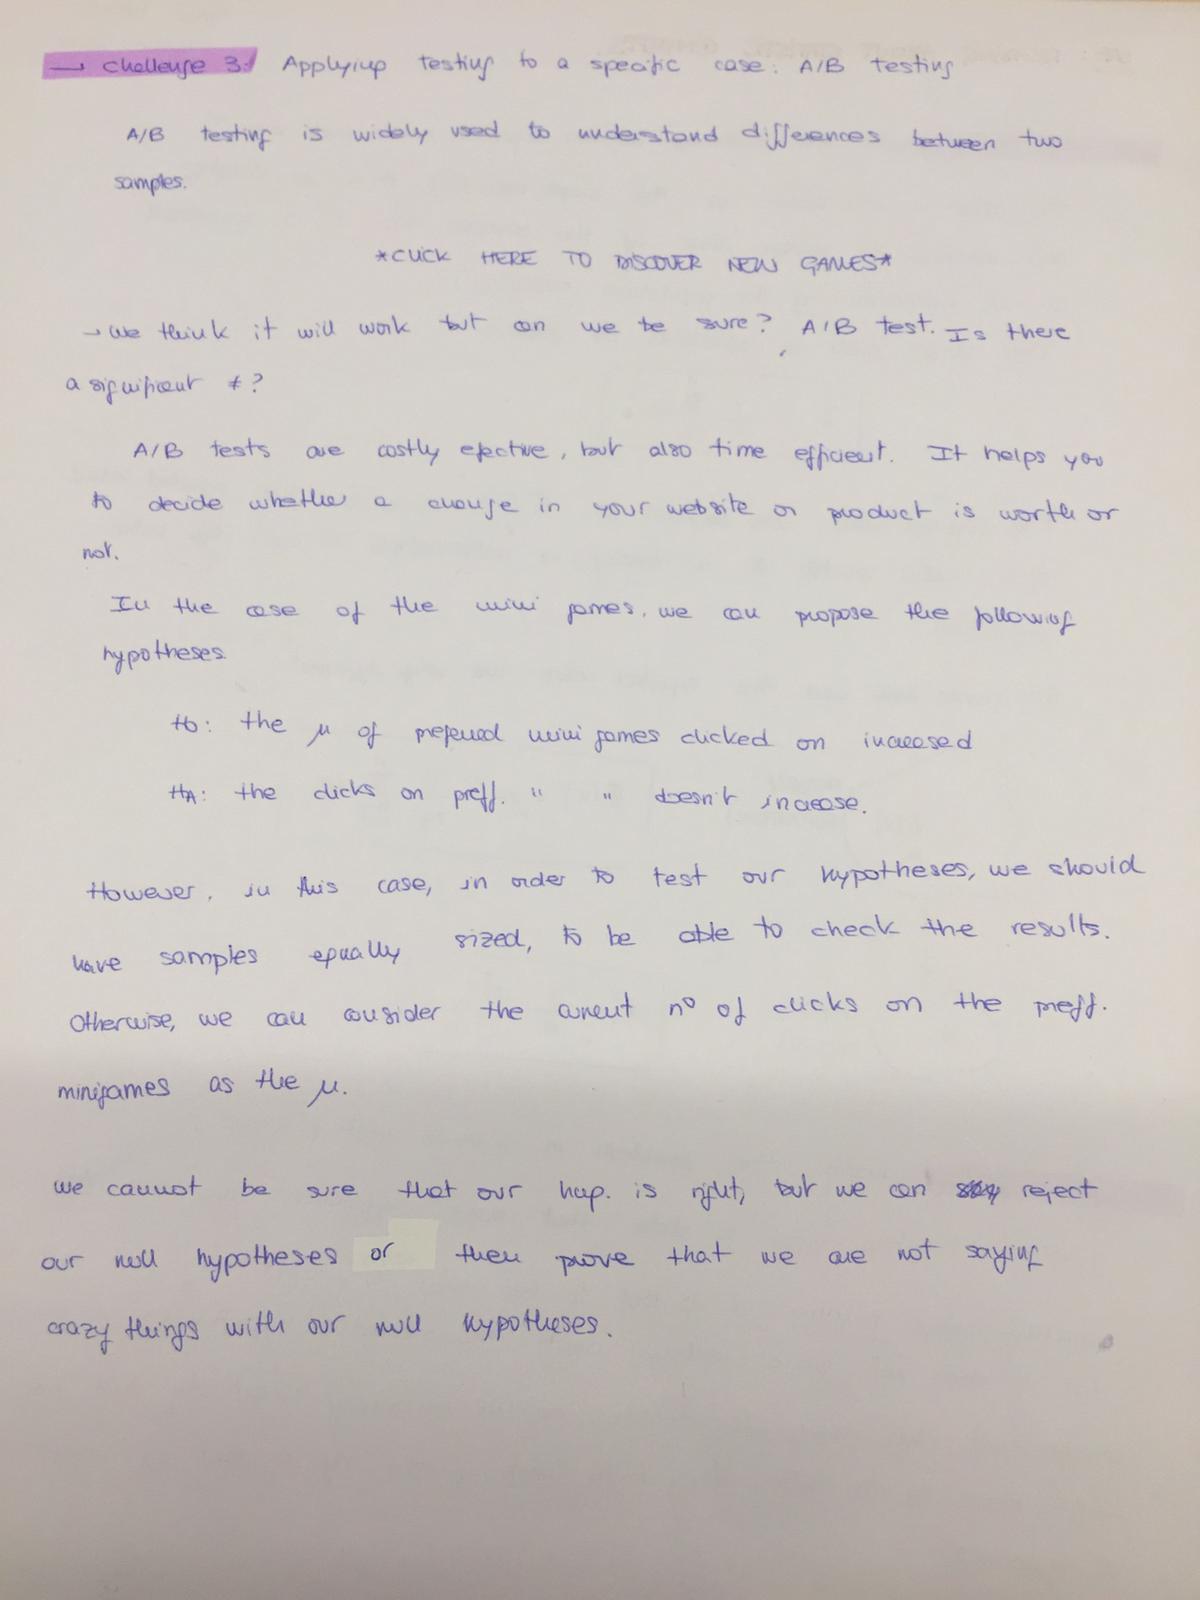 → Challenge 3: Applying testing to a specific case: A/B testing
A/B testing is widely used to understand differences between two
samples.
*CLICK HERE TO DISCOVER NEW GAMES*
→ We think it will work but can we be sure? A/B test. Is there
a significant ≠?
A/B tests are costly efective, but also time efficient. It helps you
to decide whether a change in your website or product is worth or
not.
In the case of the mini games, we can propose the following
hypotheses
H0: the μ of preferred mini games clicked on increased
HA: the clicks on preff. " " doesn't increase.
However, in this case, in order to test our hypotheses, we should
have samples equally sized, to be able to check the results.
Otherwise, we can consider the current nº of clicks on the preff.
minigames as the μ.
We cannot be sure that our hyp. is right, but we can reject
our null hypotheses or then prove that we are not saying
crazy things with our null hypotheses.